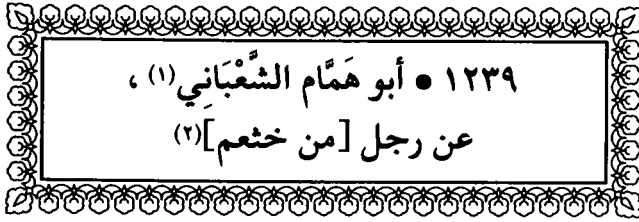 ١٢٣٩ • أبو هَمَّام الشَّعْبَانِي(١) ،
عن رجل [من خثعم](٢)